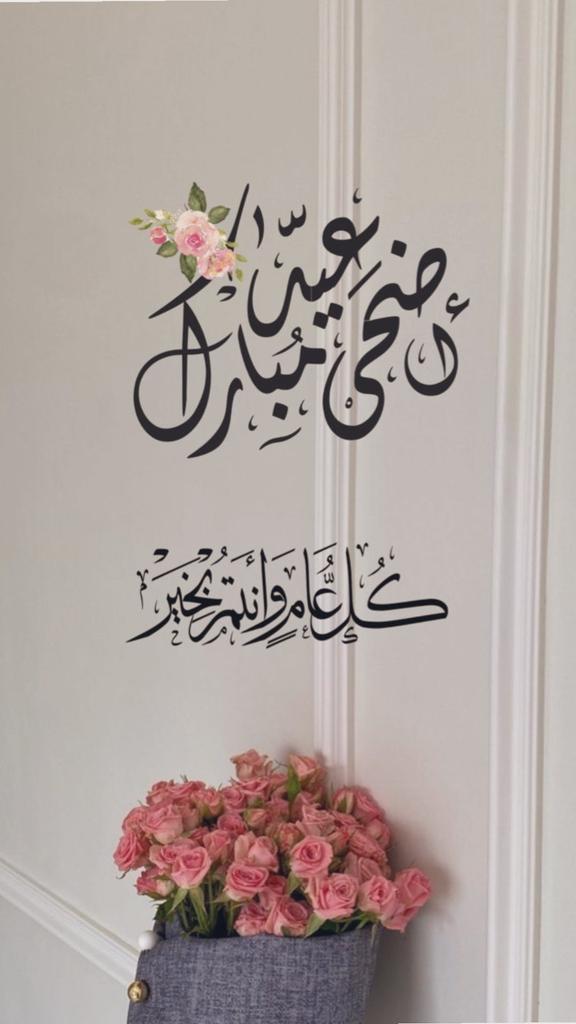 عيد أضحى مبارك
كُل عَام وَأنتُم بخَيرَ